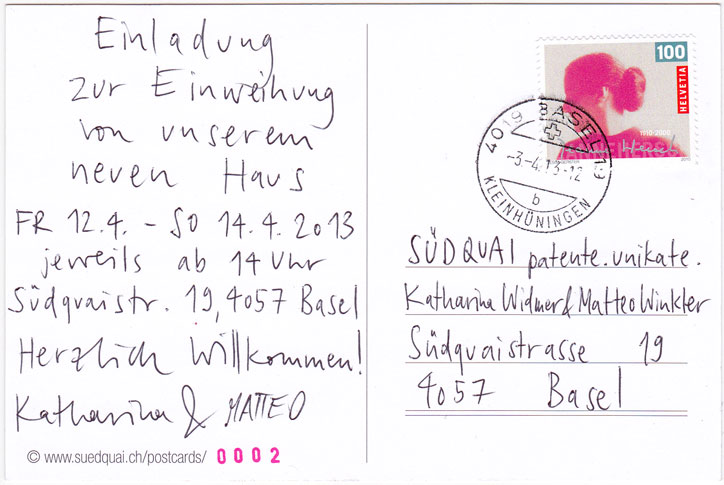 Einladung
zur Einweihung
von unserem
neuen Haus
FR 12.4. - SO 14.4.2013
jeweils ab 14 Uhr
Südquaistr. 19, 4057 Basel
Herzlich Willkommen!
Katharina & MATTEO
© www.suedquai.ch/postcards/ 0002
100
HELVETIA
1910-2000
4019 BASEL 19
-3-4.13-12
b
KLEINHÜNINGEN
SÜDQUAI patente.unikate.
Katharina Widmer & Matteo Winkler
Südquaistrasse 19
4057 Basel